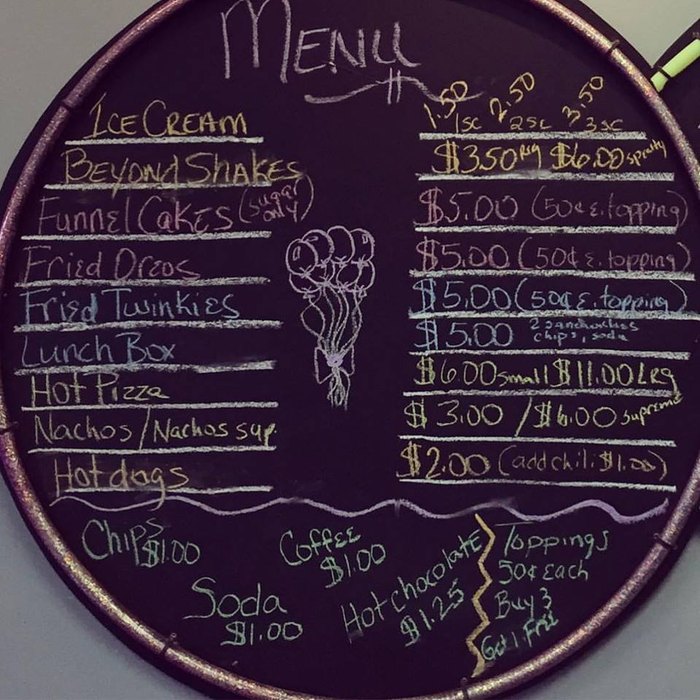 Menu
Ice Cream 1.50 1sc 2.50 2sc 3.50 3sc
Beyond Shakes $3.50 Reg $6.00 spcity
Funnel Cakes (sugar only) $5.00 (50¢ E. topping)
Fried Oreos $5.00 (50¢ E. topping)
Fried Twinkies $5.00 (50¢ E. topping)
Lunch Box $5.00 2 sandwiches chips, soda
Hot Pizza $6.00 small $11.00 LRg
Nachos/Nachos sup. $3.00 / $6.00 supreme
Hotdogs $2.00 (add chili $1.00)
Chips $1.00
Coffee $1.00
Soda $1.00
Hot chocolate $1.25
Toppings
50¢ Each
Buy 3
Get 1 Free